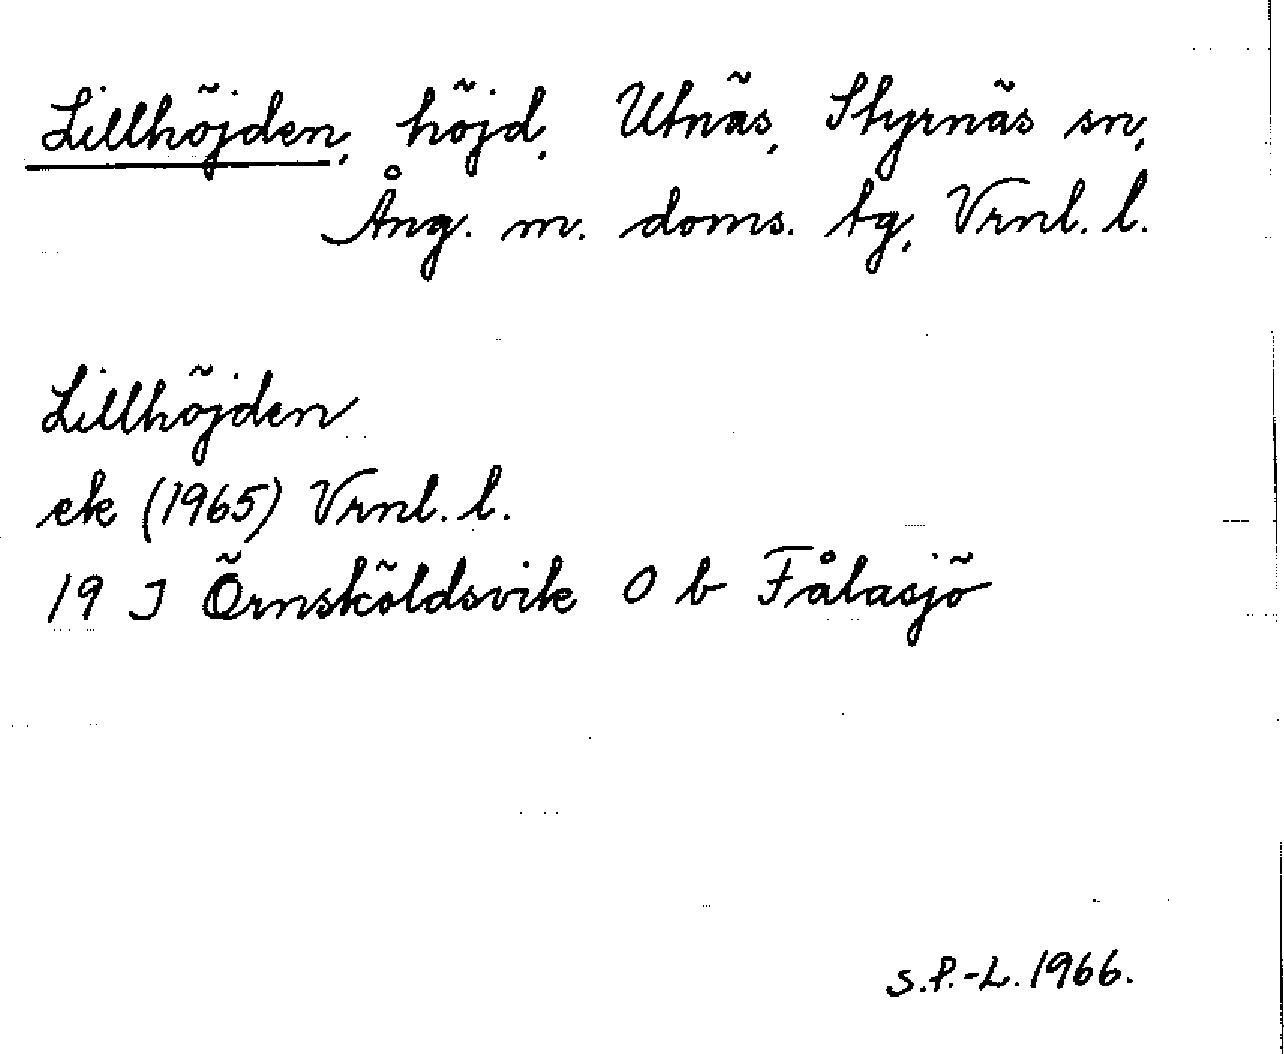 Lillhöjden, höjd, Utnäs, Styrnäs sn,
Ång. m. doms. tg, Vrnl. l.
Lillhöjden
ek (1965) Vrnl. l.
19 J Örnsköldsvik O b Fålasjö
S.P.-L. 1966.